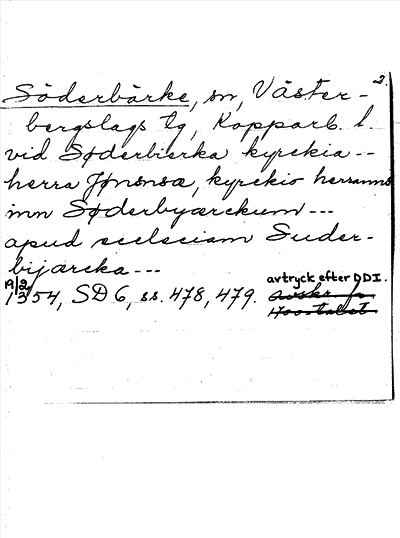 2.
Söderbärke, sn, Väster-
bergslags tg, Kopparb. l.
vid Søderbierka kyrkia --
herra Jønsnsa, kyrkio herranns
inn Søderbyærckum ---
apud ecclesiam Suder-
bijarcka ---
19/2 1354, SD 6, ss. 478, 479. avtryck efter DDI.
avskr. fr.
1700-talet